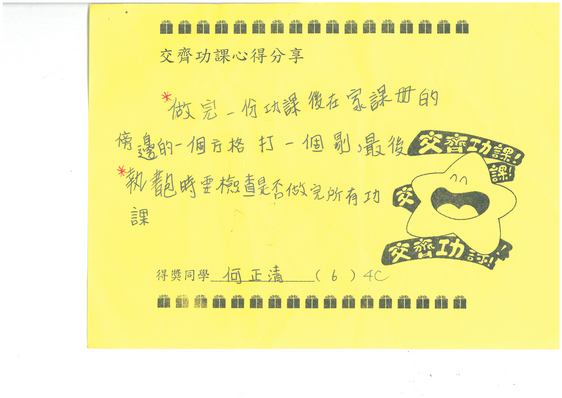 交齊功課心得分享
*做完一份功課後在家課冊的
傍邊的一個方格打一個剔，最後
*執書包時要檢查是否做完所有功
課
交齊功課!
課!
交
交齊功課!
得獎同學 何正清 （ 6 ） 4C